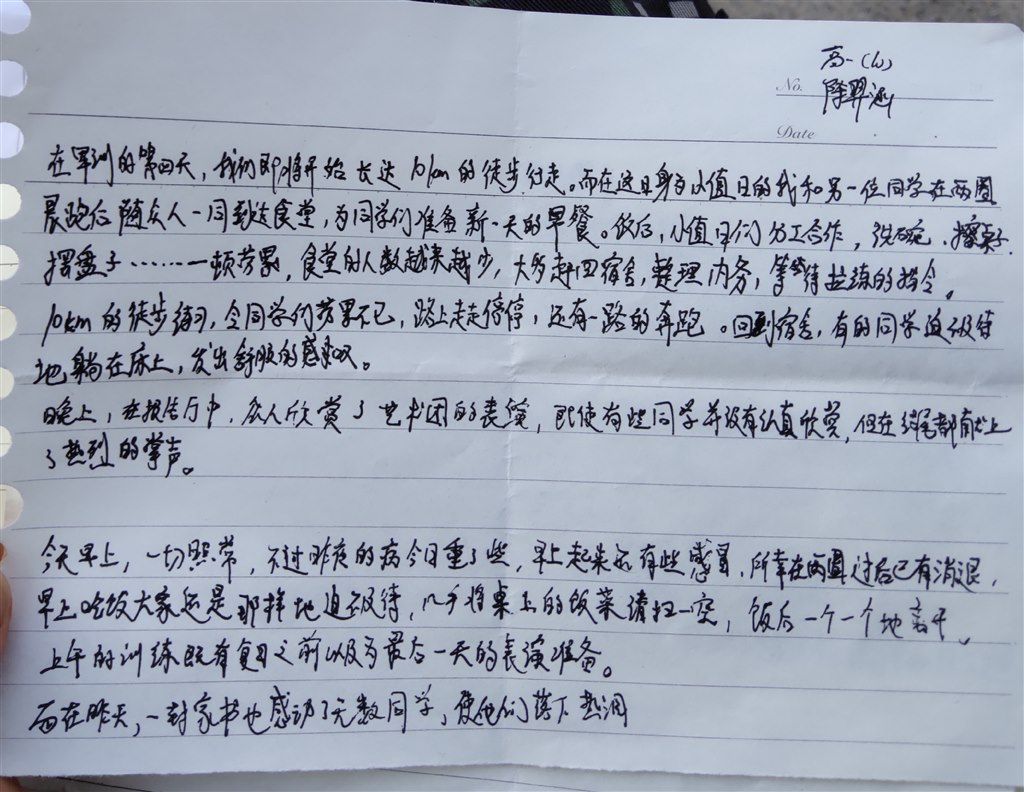 高一(10)
No. 陈羿涵
Date
在军训的第四天，我们即将开始长达10km的徒步行走。而在这日身为小值日的我和另一位同学在两圈
晨跑后随众人一同到达食堂，为同学们准备新一天的早餐。饭后，小值日们分工合作，洗碗、擦桌子、
摆盘子……一顿劳累，食堂的人数越来越少，大多赶回宿舍，整理内务，等待拉练的指令。
10km的徒步练习，令同学们劳累不已，路上走走停停，还有一路的奔跑。回到宿舍，有的同学迫不及待
地躺在床上，发出舒服的感叹。
晚上，在报告厅中，众人欣赏了艺术团的表演，即使有些同学并没有认真欣赏，但在结尾都献上
了热烈的掌声。
今天早上，一切照常，不过昨夜的病今日重了些，早上起来还有些感冒，所幸在两圈过后已有消退，
早上吃饭大家还是那样地迫不及待，几乎将桌上的饭菜清扫一空，饭后一个一个地离开。
上午的训练既有复习之前以及为最后一天的表演准备。
而在昨天，一封家书也感动了无数同学，使他们落下热泪